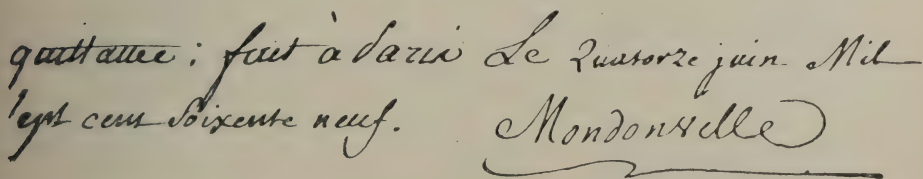 quittance; fait à Paris Le Quatorze juin Mil
sept cent Soixente neuf. Mondonville